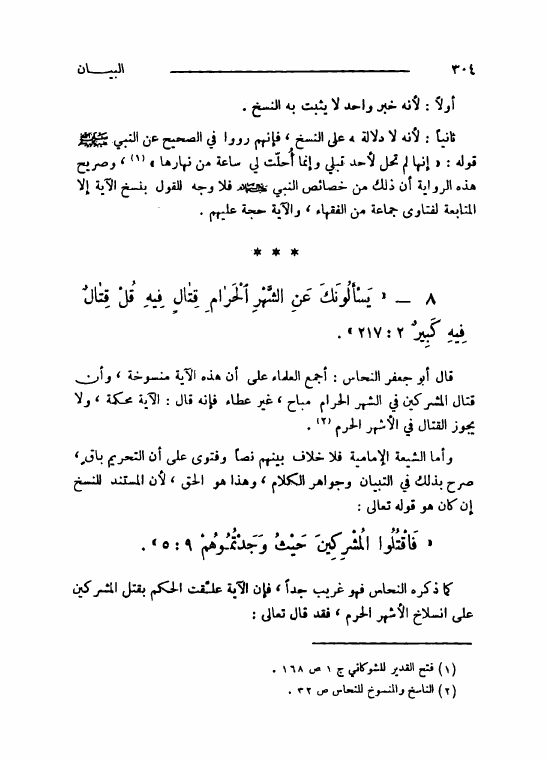 ٣٠٤ البيـــان
أولاً : لأنه خبر واحد لا يثبت به النسخ .
ثانياً : لأنه لا دلالة له على النسخ ، فإنهم رووا في الصحيح عن النبي ﷺ
قوله : « إنها لم تحل لأحد قبلي وإنما أُحلّت لي ساعة من نهارها » (١) ، وصريح
هذه الرواية أن ذلك من خصائص النبي ﷺ فلا وجه للقول بنسخ الآية إلا
المتابعة لفتاوى جماعة من الفقهاء ، والآية حجة عليهم .
* * *
٨ — « يَسْأَلُونَكَ عَنِ الشَّهْرِ ٱلْحَرَامِ قِتَالٍ فِيهِ قُلْ قِتَالٌ
فِيهِ كَبِيرٌ ٢ : ٢١٧ » .
قال أبو جعفر النحاس : أجمع العلماء على أن هذه الآية منسوخة ، وأن
قتال المشركين في الشهر الحرام مباح ، غير عطاء فإنه قال : الآية محكمة ، ولا
يجوز القتال في الأشهر الحرم (٢) .
وأما الشيعة الإمامية فلا خلاف بينهم نصاً وفتوى على أن التحريم باق ،
صرح بذلك في التبيان وجواهر الكلام ، وهذا هو الحق ، لأن المستند للنسخ
إن كان هو قوله تعالى :
« فَاقْتُلُوا الْمُشْرِكِينَ حَيْثُ وَجَدْتُمُوهُمْ ٩ : ٥ » .
كما ذكره النحاس فهو غريب جداً ، فإن الآية علّقت الحكم بقتل المشركين
على انسلاخ الأشهر الحرم ، فقد قال تعالى :
(١) فتح القدير للشوكاني ج ١ ص ١٦٨ .
(٢) الناسخ والمنسوخ للنحاس ص ٣٢ .